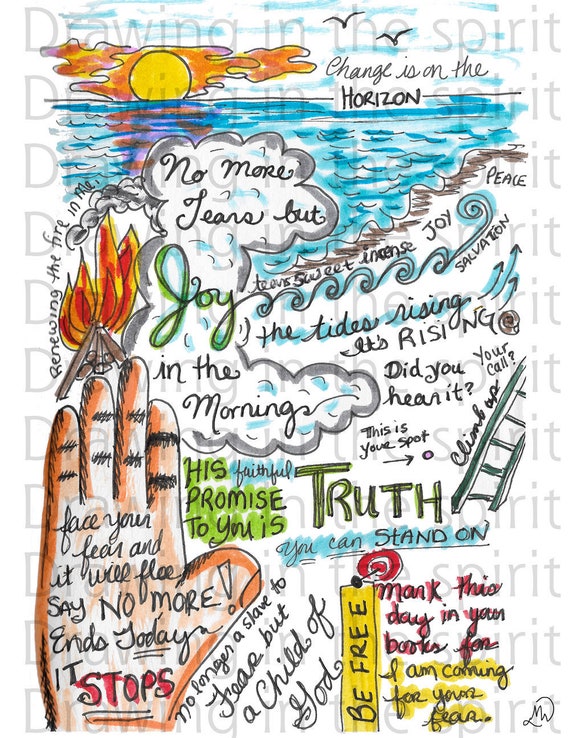 Drawing in the spirit
Change is on the
HORIZON
No more
Tears but
Joy
in the
Mornings
PEACE
Renewing the fire in me.
tears sweet incense JOY
SALVATION
the tides rising
It's RISING
Did you
hear it?
Your
call?
Climb up
This is
your spot
HIS faithful
PROMISE
TO YOU IS
TRUTH
You can STAND ON
face your
fear and
it will flee,
SAY NO MORE!
Ends Today
IT STOPS
No longer a slave to
Fear but
a Child of
God
BE FREE
Mark this
day in your
books for
I am coming
for your
fear.
MW
Drawing in the spirit
Drawing in the spirit
Drawing in the spirit
Drawing in the spirit
Drawing in the spirit
Drawing in the spirit
Drawing in the spirit
Drawing in the spirit
Drawing in the spirit
Drawing in the spirit